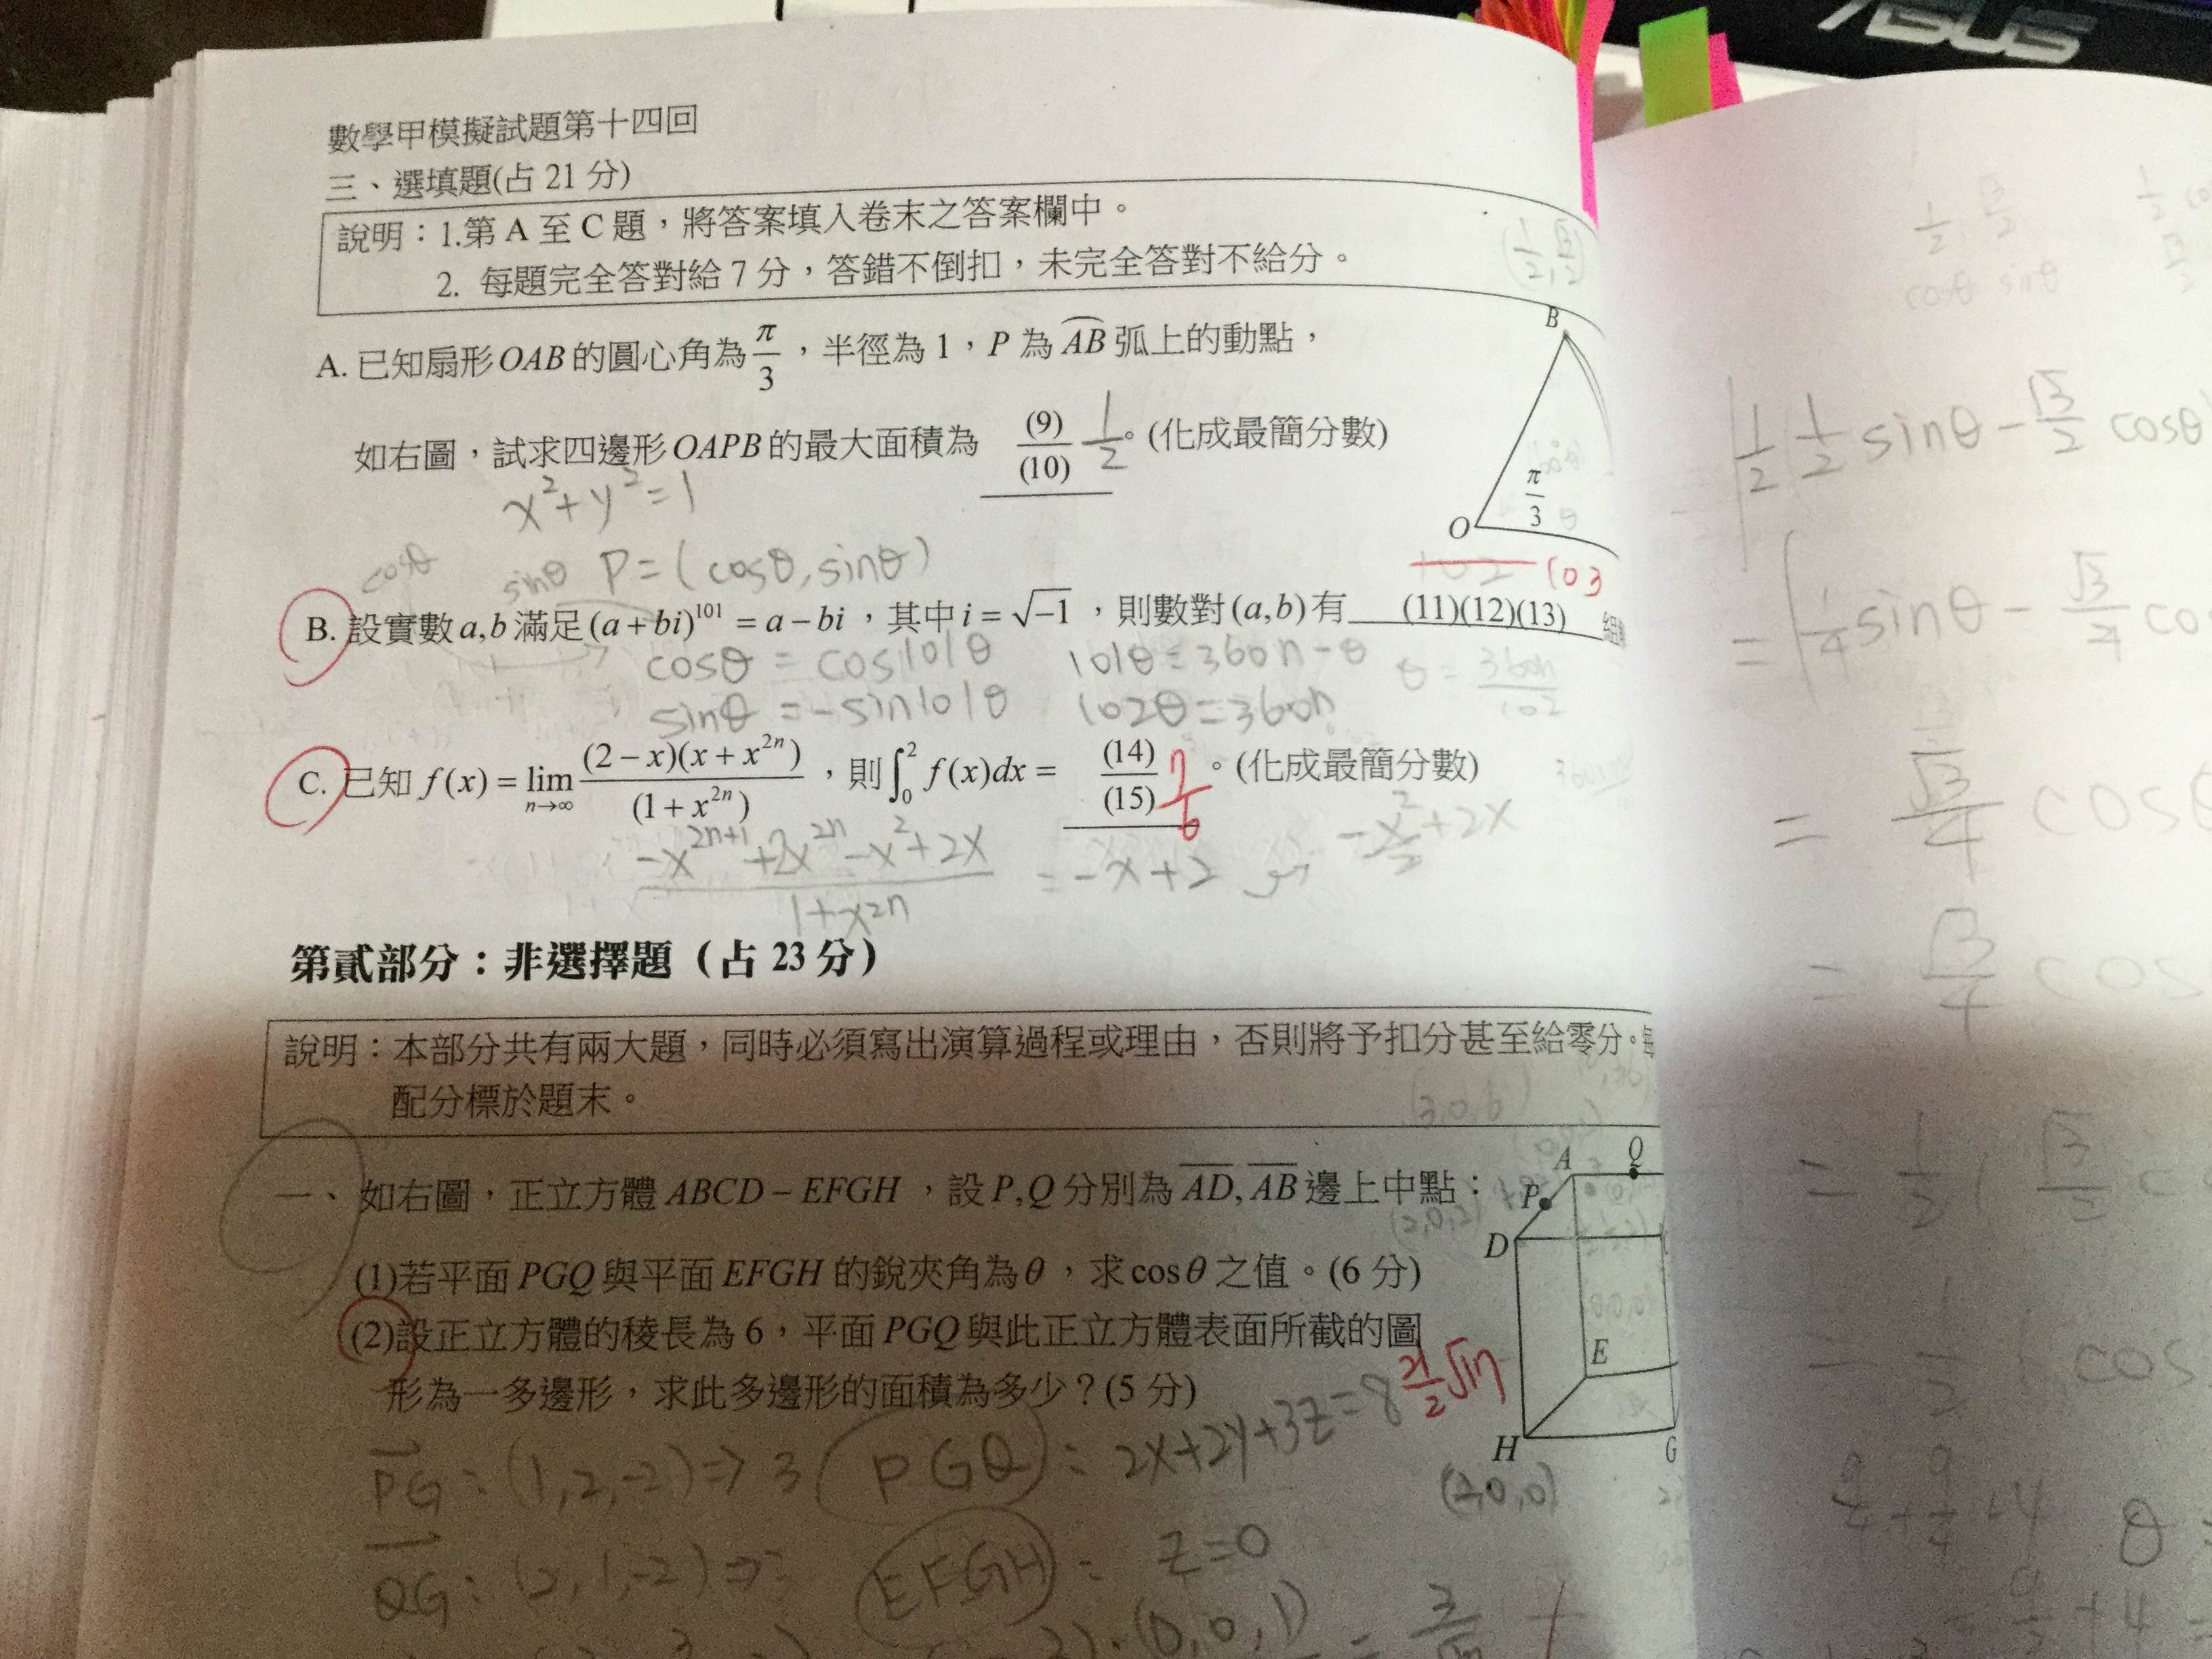 ASUS
數學甲模擬試題第十四回
三、選填題(占 21 分)
說明：1.第 A 至 C 題，將答案填入卷末之答案欄中。
2. 每題完全答對給 7 分，答錯不倒扣，未完全答對不給分。
A. 已知扇形 OAB 的圓心角為 π/3，半徑為 1，P 為 AB 弧上的動點，
如右圖，試求四邊形 OAPB 的最大面積為 (9)/(10) 1/2。(化成最簡分數)
B
O
π/3
x²+y²=1
cosθ
sinθ P=(cosθ,sinθ)
102 103
B. 設實數 a,b 滿足 (a+bi)¹⁰¹ = a−bi，其中 i = √−1，則數對 (a,b) 有 (11)(12)(13) 組
cosθ = cos101θ 101θ=360n-θ θ = 360n/102
sinθ = -sin101θ 102θ=360n
C. 已知 f(x) = lim n→∞ (2−x)(x+x²ⁿ)/(1+x²ⁿ)，則 ∫₀² f(x)dx = (14)/(15) 7/6。(化成最簡分數)
(-x²ⁿ⁺¹+2x²ⁿ-x²+2x)/(1+x²ⁿ) = -x+2 → -x²/2+2x
第貳部分：非選擇題（占 23 分）
說明：本部分共有兩大題，同時必須寫出演算過程或理由，否則將予扣分甚至給零分。
配分標於題末。
(3,0,6)
一、 如右圖，正立方體 ABCD − EFGH，設 P,Q 分別為 AD, AB 邊上中點：
(1)若平面 PGQ 與平面 EFGH 的銳夾角為 θ，求 cosθ 之值。(6 分)
(2)設正立方體的稜長為 6，平面 PGQ 與此正立方體表面所截的圖
形為一多邊形，求此多邊形的面積為多少？(5 分)
21/2 √17
A Q
P
D
E
H G
(2,0,0)
PG = (1,2,-2) ⇒ 3 PGQ = 2x+2y+3z=8
QG : (2,1,-2) ⇒ EFGH : z=0
(0,0,1)
1/2 √3/2
cosθ sinθ
1/2 1/2 sinθ - √3/2 cosθ
= 1/4 sinθ - √3/4 co
= √3/4 cos
= √3/4 cos
9/4 + 9/4 + 4 θ